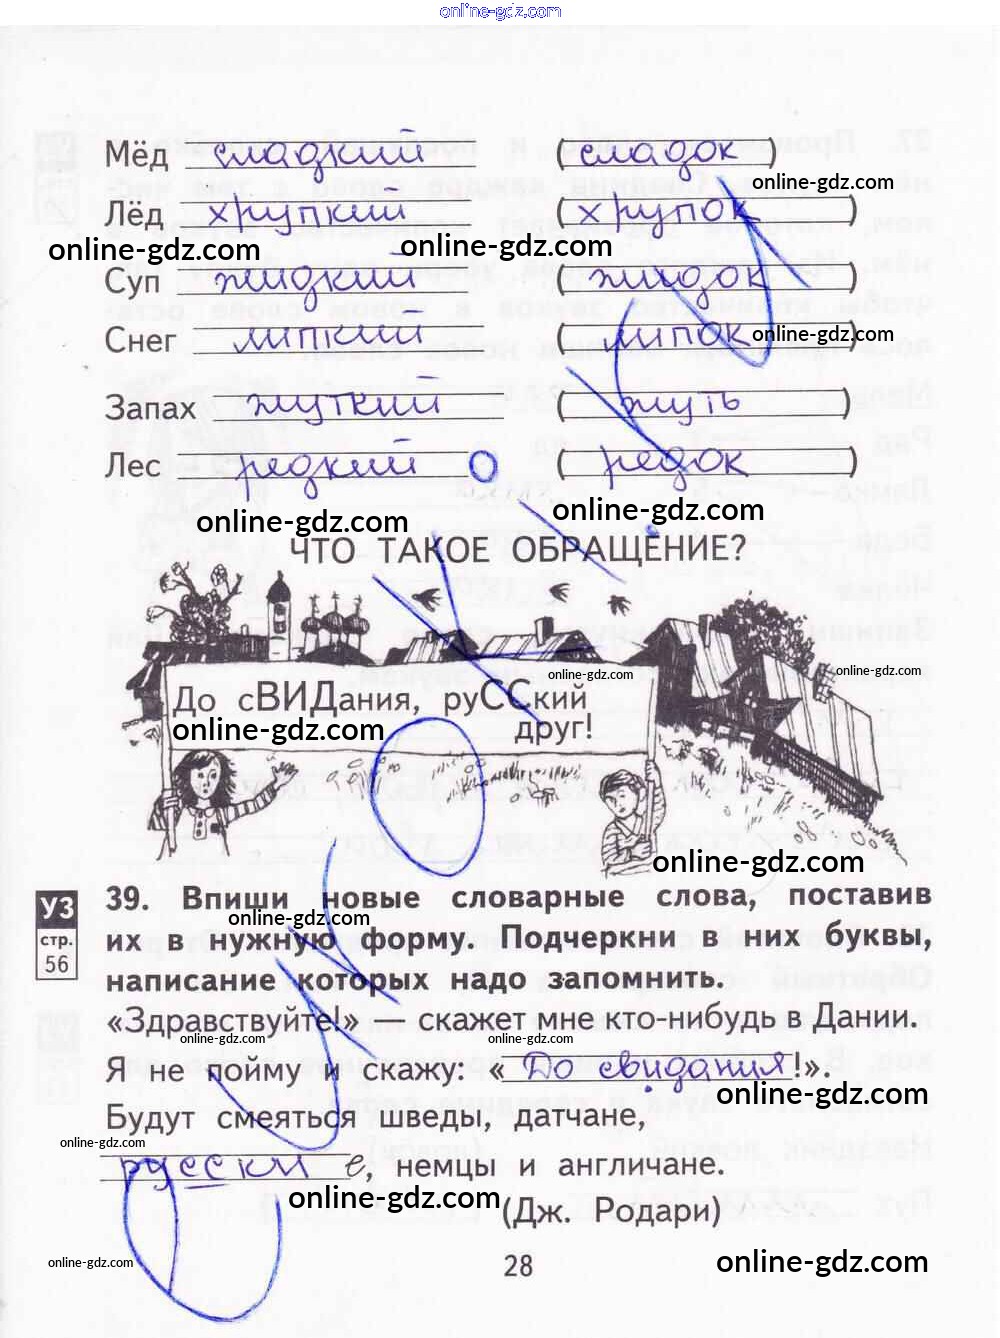 online-gdz.com
Мёд сладкий (сладок)
online-gdz.com
Лёд хрупкий (хрупок)
online-gdz.com online-gdz.com
Суп жидкий (жидок)
online-gdz.com
Снег липкий (липок)
Запах жуткий (жуть)
Лес редкий (редок)
online-gdz.com online-gdz.com
ЧТО ТАКОЕ ОБРАЩЕНИЕ?
online-gdz.com
До сВИДания, руССкий
online-gdz.com
друг!
online-gdz.com
УЗ
стр.
56
39. Впиши новые словарные слова, поставив
online-gdz.com
их в нужную форму. Подчеркни в них буквы,
написание которых надо запомнить.
«Здравствуйте!» — скажет мне кто-нибудь в Дании.
online-gdz.com online-gdz.com
Я не пойму и скажу: «До свидания!».
online-gdz.com
Будут смеяться шведы, датчане,
online-gdz.com
русские, немцы и англичане.
online-gdz.com
(Дж. Родари)
online-gdz.com 28 online-gdz.com